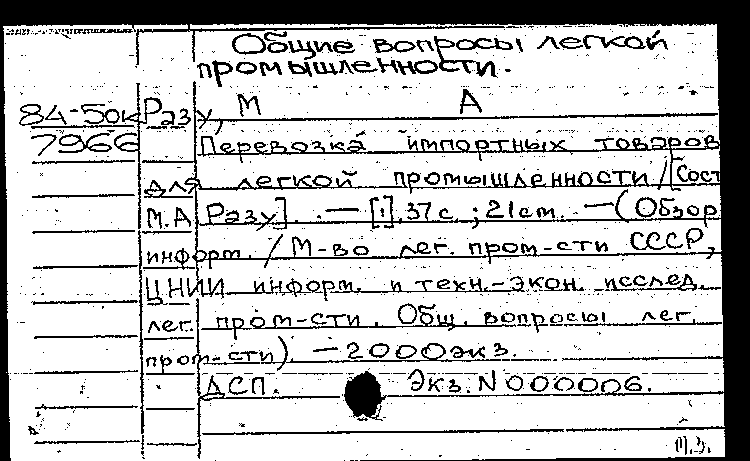 Общие вопросы легкой
промышленности.
84-50к Рэзу, М А
7966 Перевозка импортных товаров
для легкой промышленности/[Сост
М.А Рэзу]. — [1], 37 с. ; 21 cm. — (Обзор
информ. / М-во лег. пром-сти СССР,
ЦНИИ информ. и техн.-экон. исслед.
лег. пром-сти. Общ. вопросы лег.
пром-сти). — 2000 экз.
ДСП. Экз. N 000006.